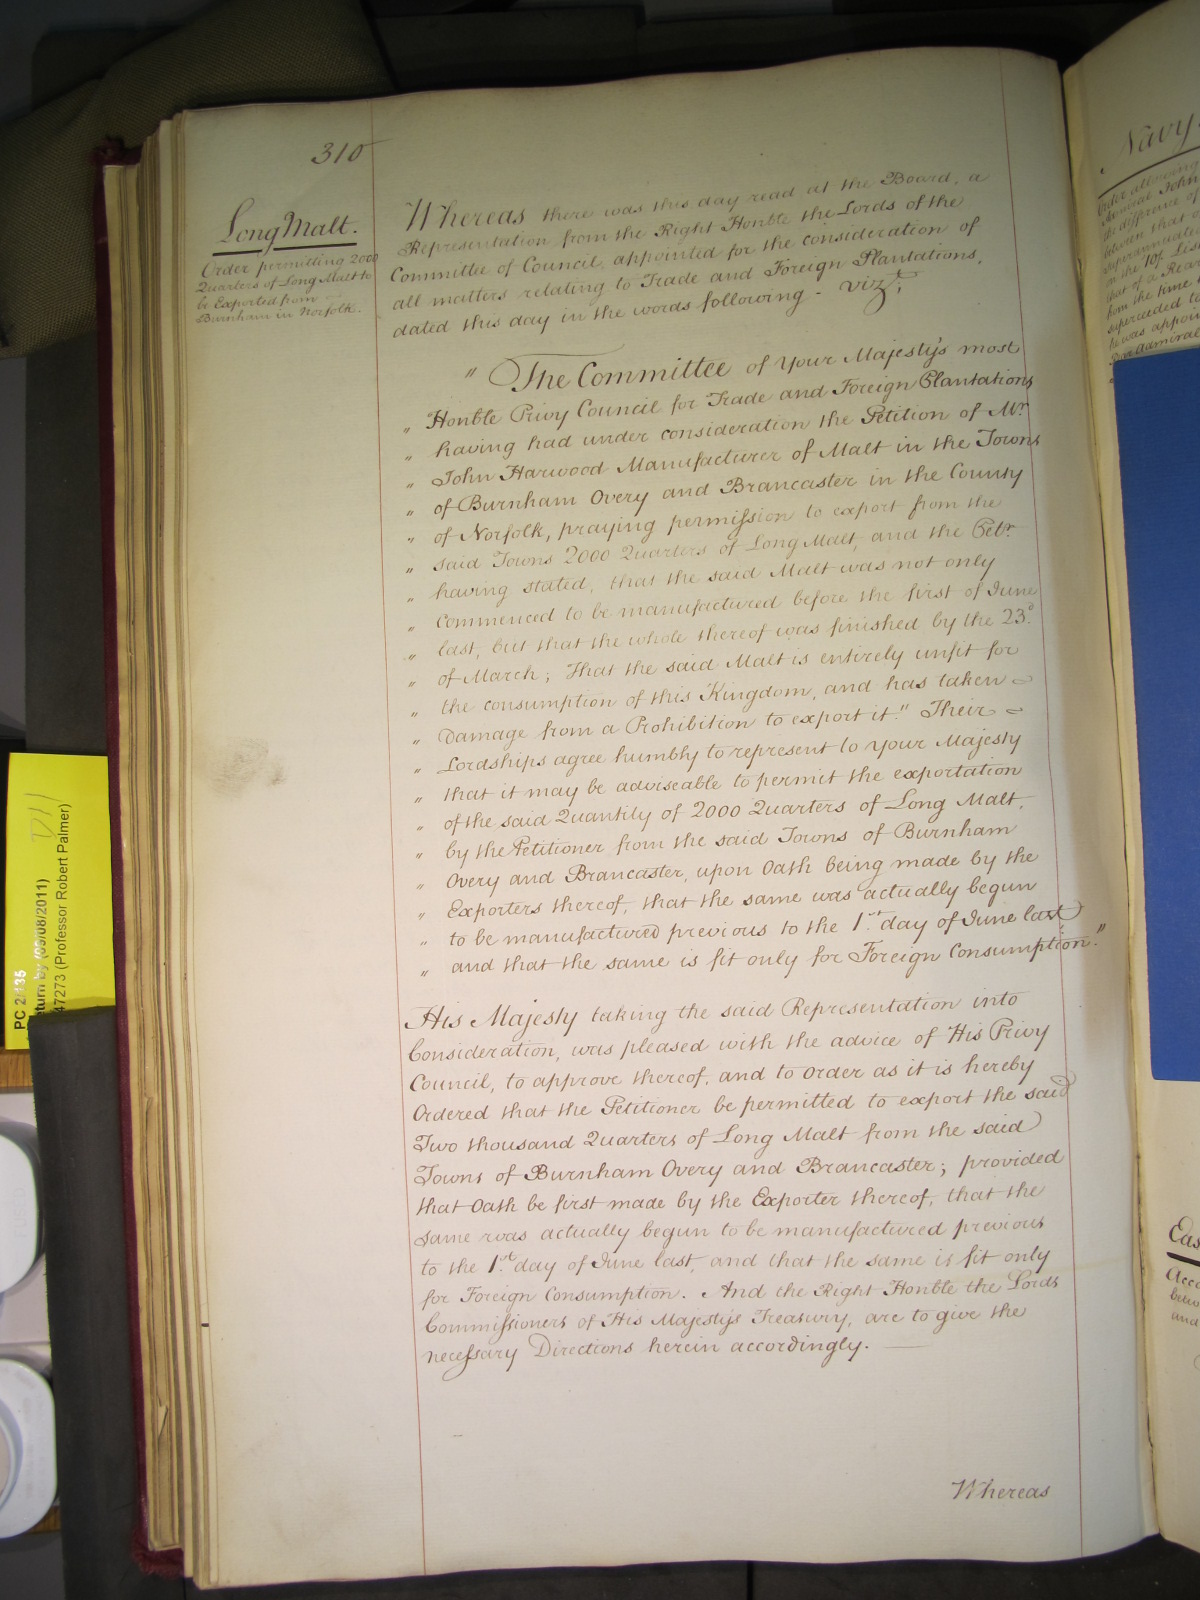 310
Long Malt.
Order permitting 2000
Quarters of Long Malt to
be Exported from
Burnham in Norfolk.
Whereas there was this day read at the Board, a
Representation from the Right Honble the Lords of the
Committee of Council, appointed for the consideration of
all matters relating to Trade and Foreign Plantations,
dated this day in the words following - vizt.
" The Committee of Your Majesty's most
" Honble Privy Council for Trade and Foreign Plantations
" having had under consideration the Petition of Mr.
" John Harwood Manufacturer of Malt in the Towns
" of Burnham Overy and Brancaster in the County
" of Norfolk, praying permission to export from the
" said Towns 2000 Quarters of Long Malt, and the Petr.
" having stated, that the said Malt was not only
" Commenced to be manufactured before the first of June
" last, but that the whole thereof was finished by the 23d.
" of March; That the said Malt is entirely unfit for
" the consumption of this Kingdom, and has taken
" damage from a Prohibition to export it." Their
" Lordships agree humbly to represent to Your Majesty
" that it may be adviseable to permit the exportation
" of the said Quantity of 2000 Quarters of Long Malt,
" by the Petitioner from the said Towns of Burnham
" Overy and Brancaster, upon Oath being made by the
" Exporters thereof, that the same was actually begun
" to be manufactured previous to the 1st. day of June last
" and that the same is fit only for Foreign Consumption."
His Majesty taking the said Representation into
Consideration, was pleased with the advice of His Privy
Council, to approve thereof, and to order as it is hereby
Ordered that the Petitioner be permitted to export the said
Two thousand Quarters of Long Malt from the said
Towns of Burnham Overy and Brancaster; provided
that Oath be first made by the Exporter thereof, that the
same was actually begun to be manufactured previous
to the 1st. day of June last, and that the same is fit only
for Foreign Consumption. And the Right Honble the Lords
Commissioners of His Majesty's Treasury, are to give the
necessary Directions herein accordingly.
Whereas
Navy
Order allowing
Admiral John
the difference of
between that of
superannuated
on the 10s. List
that of a Rear
from the time
superceded to
he was appoin
Rear Admiral
Eas
and
PC 2/135
turn by (09/08/2011)
47273 (Professor Robert Palmer)